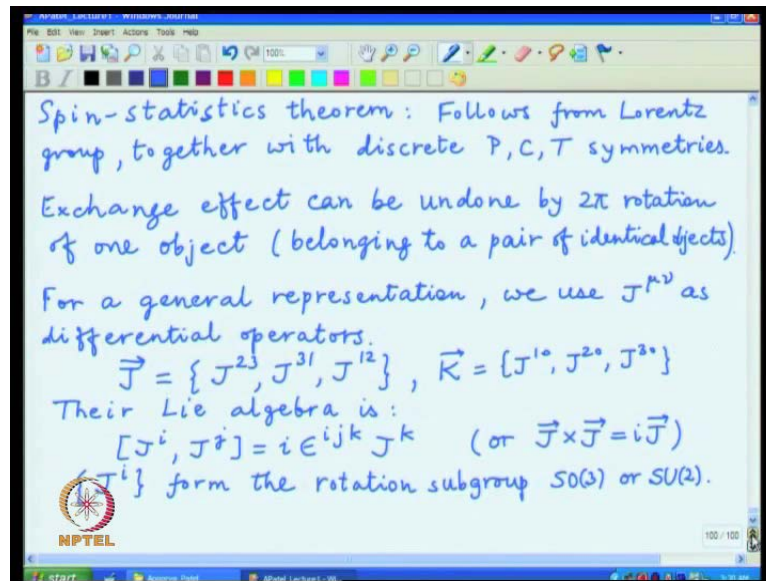 APatel_Lecture1 - Windows Journal
File Edit View Insert Actions Tools Help
100%
B I
Spin-statistics theorem: Follows from Lorentz
group, together with discrete P, C, T symmetries.
Exchange effect can be undone by 2π rotation
of one object (belonging to a pair of identical objects).
For a general representation, we use J^{μν} as
differential operators.
\vec{J} = {J^{23}, J^{31}, J^{12}}, \vec{K} = {J^{10}, J^{20}, J^{30}}
Their Lie algebra is:
[J^i, J^j] = i ϵ^{ijk} J^k (or \vec{J}×\vec{J} = i\vec{J})
{J^i} form the rotation subgroup SO(3) or SU(2).
NPTEL
100 / 100
start Apoorva Patel APatel_Lecture1 - Wi...